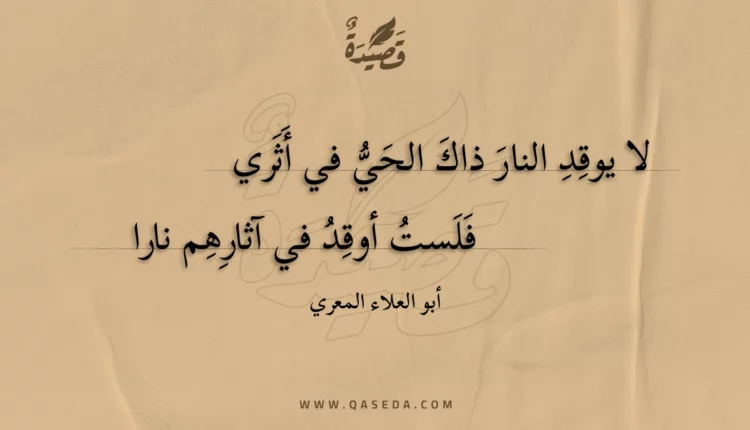 قَصِيدَةٌ
لا يوقِدِ النارَ ذاكَ الحَيُّ في أَثَري
فَلَستُ أوقِدُ في آثارِهِم نارا
أبو العلاء المعري
WWW.QASEDA.COM